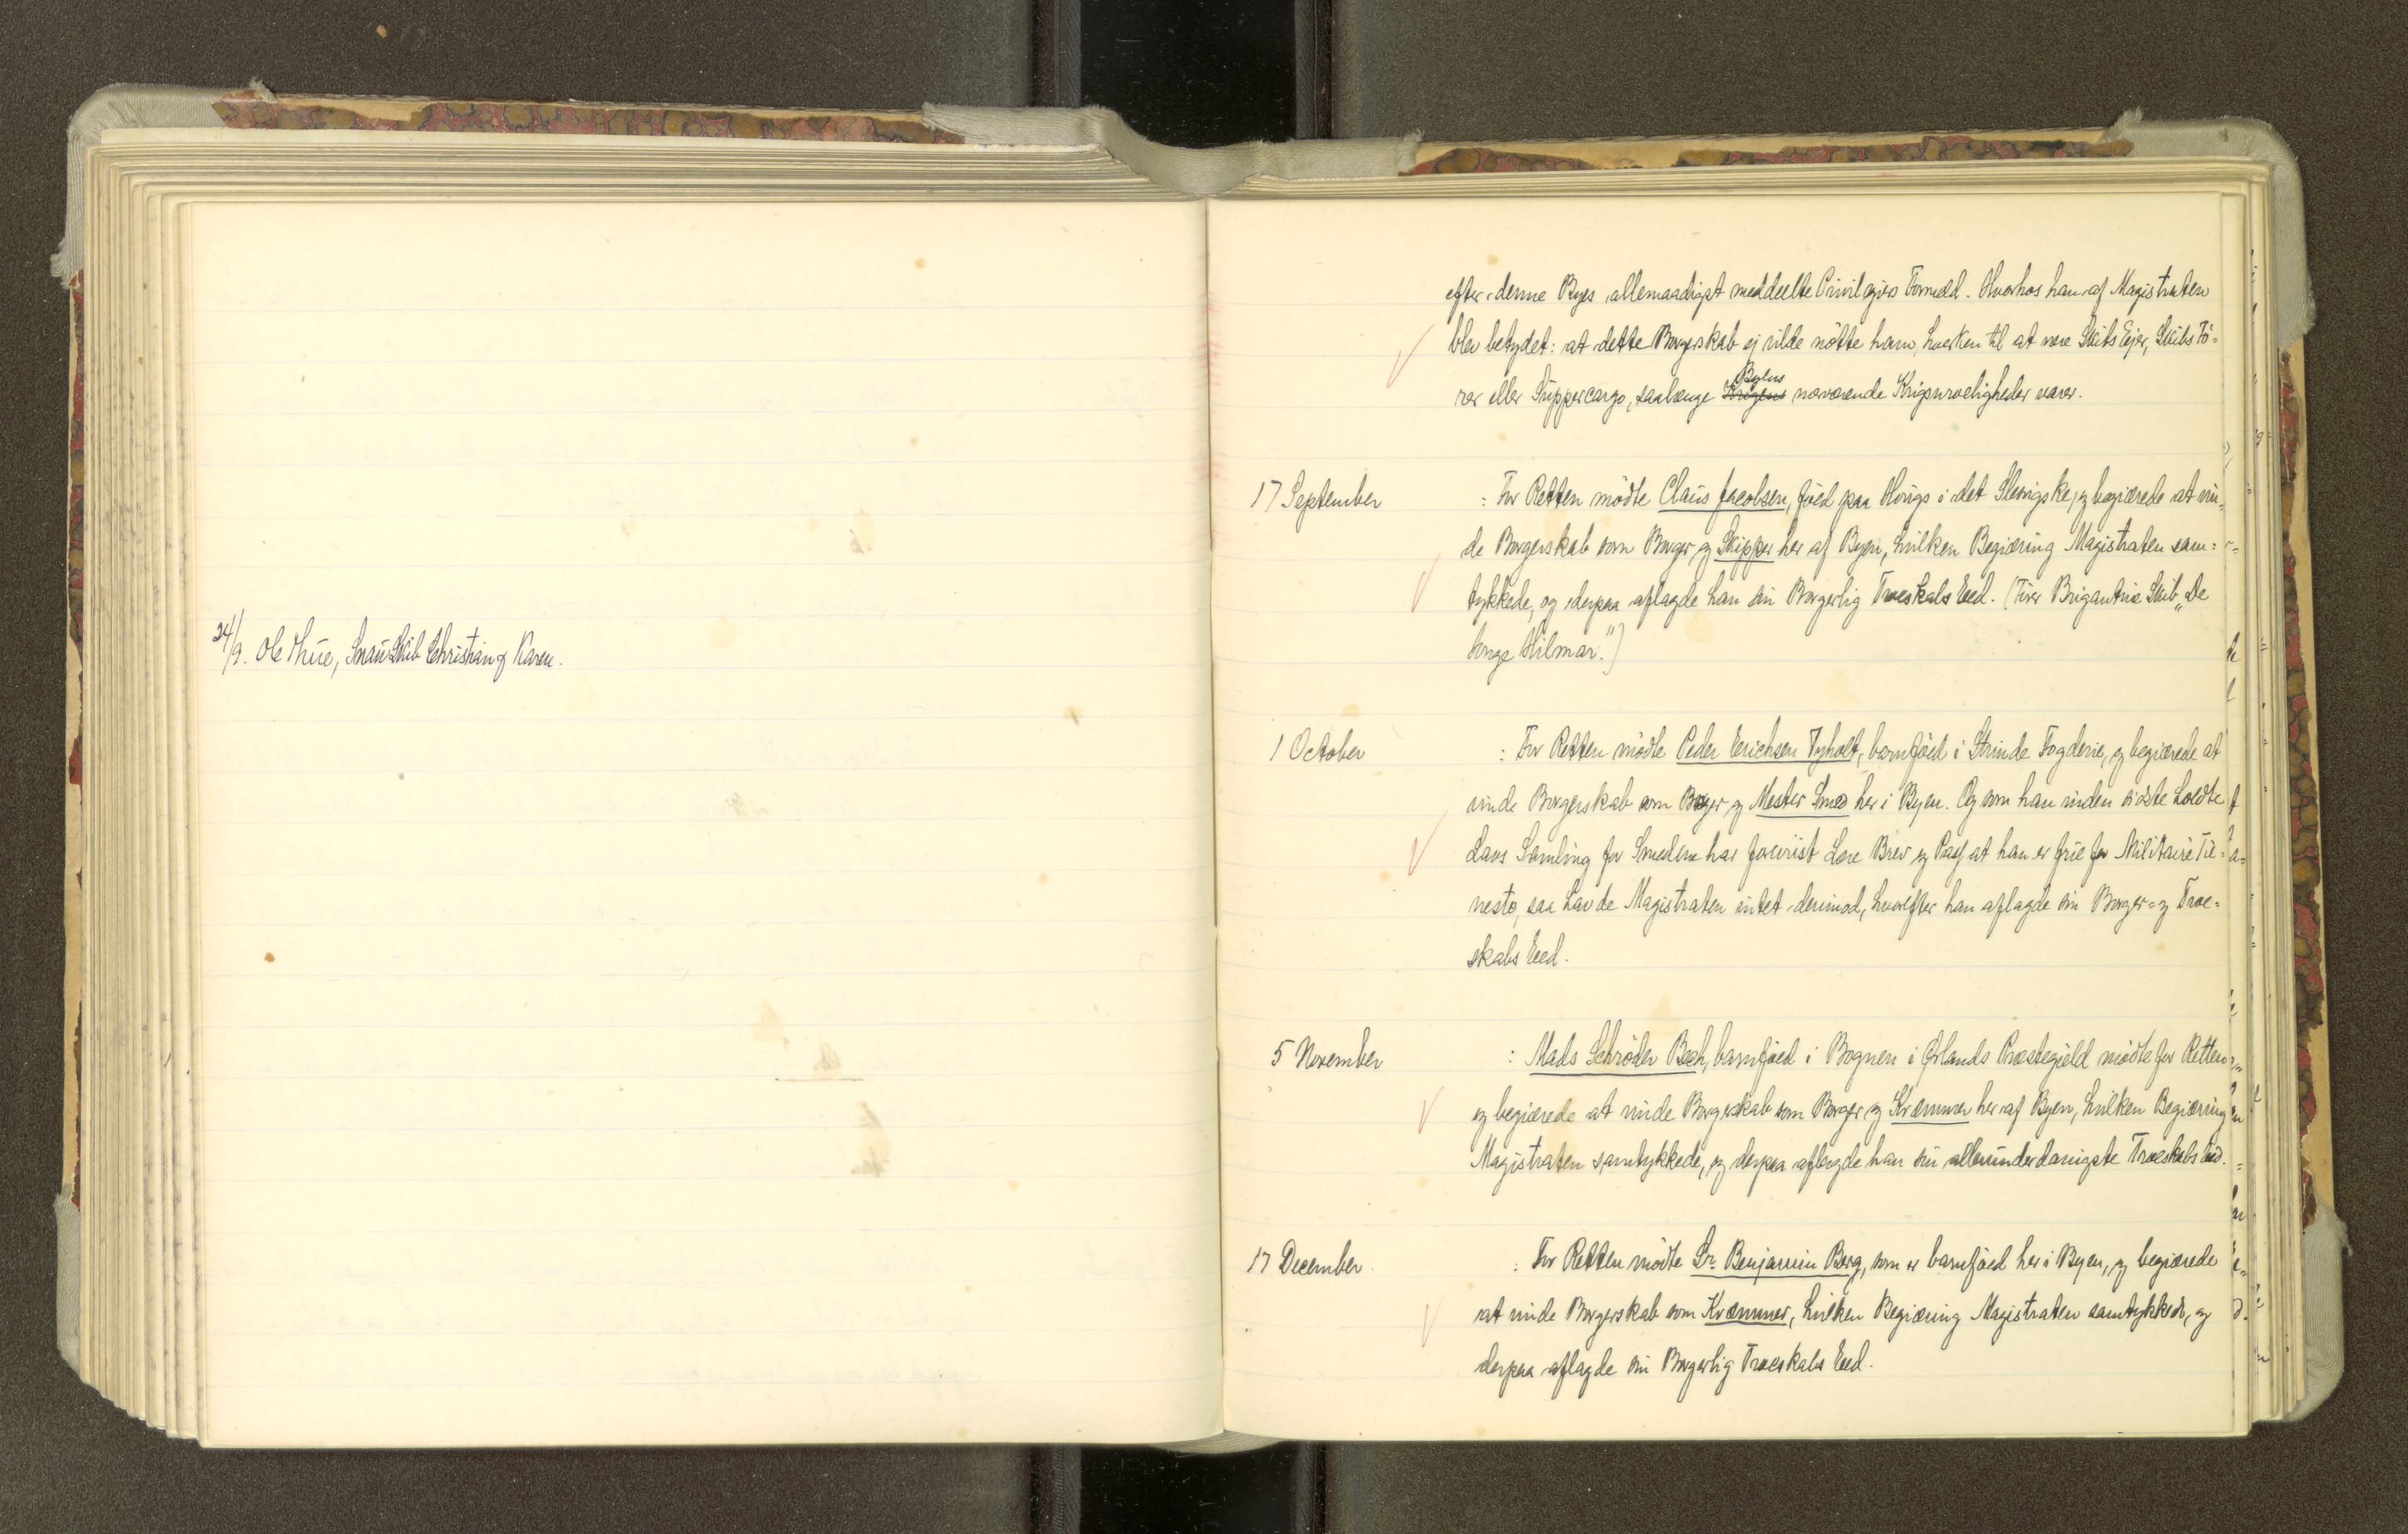 24/9. Ole Thue, Snau Skib Christian og Karen.
efter denne Byes allernaadigst meddeelte Privilegiers Formeld. Hvorhos han af Magistraten
blev betydet: at dette Borgerskab ej vilde nötte ham, hverken til at være Skibs Ejer, Skibs Fö-
rer eller Suppercargo, saalænge Krigens Byens nærværende Krigsuroeligheder varer.
17 September : For Retten mödte Claus Jacobsen, föed paa i det Slesvigske, og begiærede at vin-
de Borgerskab som Borger og Skipper her af Byen, hvilken Begiæring Magistraten sam-
tykkede, og derpaa aflagde han sin Borgerlig Troeskabs Eed. (Fører Brigantine Skib „De
Jonge Hilmar.")
1 October : For Retten mödte Peder Erichsen Tyholt, barnföed i Strinde Fogderie, og begiærede at
vinde Borgerskab som Borger og Mester Smed her i Byen. Og som han inden sidste holdte
Laus Samling for Smedene har foreviist Lære Brev og Pas, at han er frie for Militaire Tie-
neste, saa havde Magistraten intet derimod, hvorefter han aflagde sin Borger- og Troe-
skabs Eed.
5 November : Mads Schröder Bech, barnföed i Bognen i Ørlands Præstegield mödte for Retten
og begiærede at vinde Borgerskab som Borger og Kræmmer her af Byen, hvilken Begiæring
Magistraten samtykkede, og derpaa aflagde han sin allerunderdanigste Troeskabs Eed.
17 December : For Retten mödte Sr. Benjamin Berg, som er barnföed her i Byen, og begiærede
at vinde Borgerskab som Kræmmer, hvilken Begiæring Magistraten samtykkede, og
derpaa aflagde sin Borgerlig Troeskabs Eed.